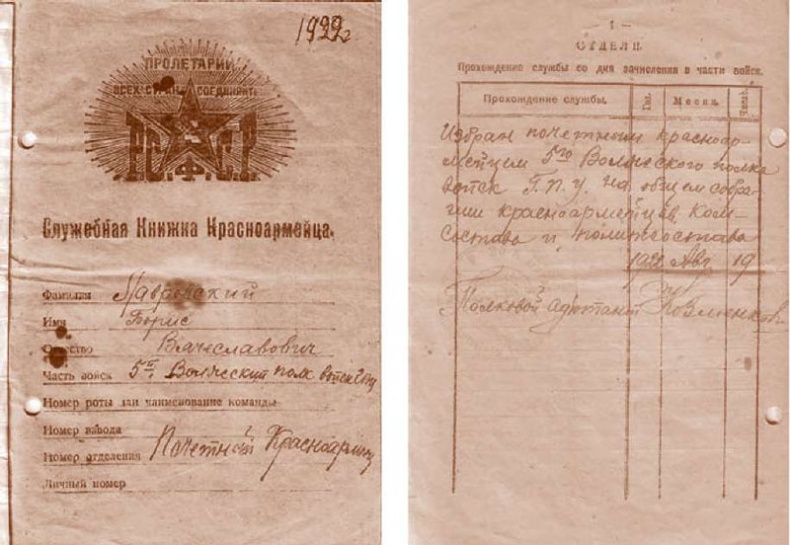 1922г
ПРОЛЕТАРИИ
ВСЕХ СТРАН СОЕДИНЯЙТЕСЬ
Р.С.Ф.С.Р.
Служебная Книжка Красноармейца.
Фамилия
Имя Борис
Отчество Вячеславович
Часть войск 5й Волжский полк войск Гпу
Номер роты или наименование команды
Номер взвода
Номер отделения Почетный Красноармеец
Личный номер
— 1 —
ОТДЕЛ II.
Прохождение службы со дня зачисления в части войск.
Прохождение службы. Год. Месяц. Число.
Избран почетным красноар-
мейцем 5го Волжского полка
войск Г.П.У. на общем собра-
нии красноармейцев, Ком-
состава и политсостава
1922 Авг 19
Полковой адъютант